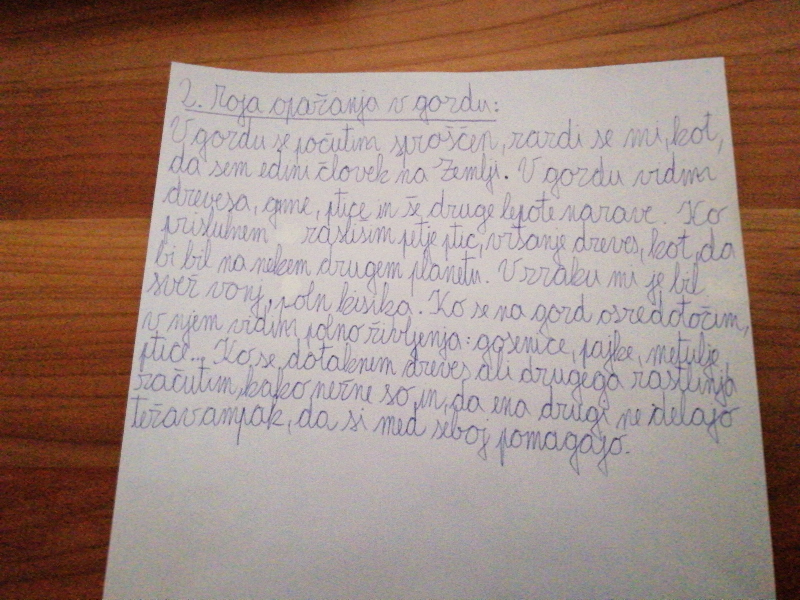 2. Moja opažanja v gozdu:
V gozdu se počutim sproščen, zardi se mi, kot,
da sem edini človek na Zemlji. V gozdu vidim
drevesa, grme, ptice in še druge lepote narave. Ko
prisluhnem razlisim petje ptic, vršanje dreves, kot, da
bi bil na nekem drugem planetu. V zraku mi je bil
svež vonj, poln kisika. Ko se na gozd osredotočim,
v njem vidim polno življenja: gosenice, pajke, metulje,
ptice... Ko se dotaknem dreves ali drugega rastlinja
začutim, kako nežne so, in, da ena drugi ne delajo
težav ampak, da si med seboj pomagajo.